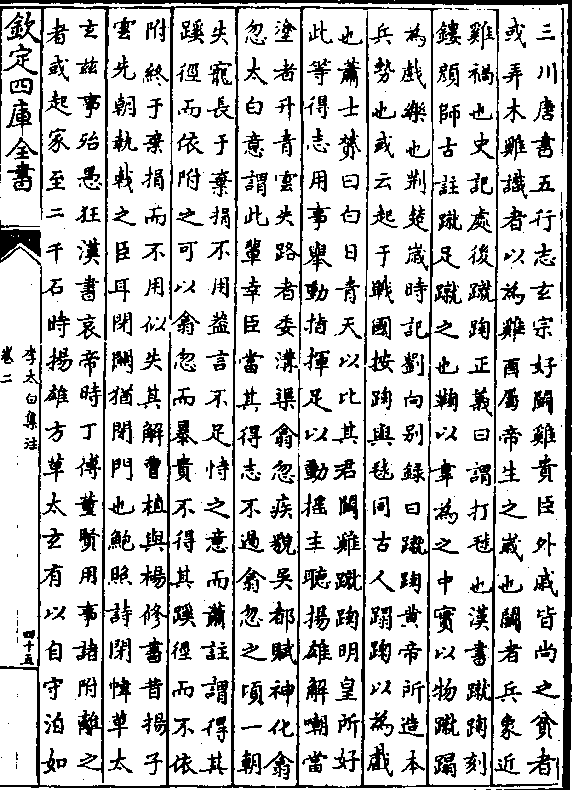 三川唐書五行志玄宗好鬬雞貴臣外戚皆尚之貧者
或弄木雞識者以為雞酉屬帝生之歲也鬬者兵象近
雞禍也史記處後蹴踘正義曰謂打毬也漢書蹴踘刻
鏤顔師古註蹴足蹴之也鞠以韋為之中實以物蹴蹋
為戲樂也荆楚歲時記劉向别錄曰蹴踘黄帝所造本
兵勢也或云起于戰國按踘與毬同古人蹋踘以為戲
也蕭士贇曰白日青天以比其君鬬雞蹴踘明皇所好
此等得志用事舉動指揮足以動摇主聽揚雄解嘲當
塗者升青雲失路者委溝渠翕忽疾貌吴都賦神化翕
忽太白意謂此輩幸臣當其得志不過翕忽之頃一朝
失寵長于棄捐不用葢言不足恃之意而蕭註謂得其
蹊徑而依附之可以翕忽而暴貴不得其蹊徑而不依
附終于棄捐而不用似失其解曹植與楊修書昔揚子
雲先朝執戟之臣耳閉關猶閉門也鮑照詩閉幃草太
玄兹事殆愚狂漢書哀帝時丁傅董賢用事諸附離之
者或起家至二千石時揚雄方草太玄有以自守泊如
欽定四庫全書
李太白集注
卷二
四十五